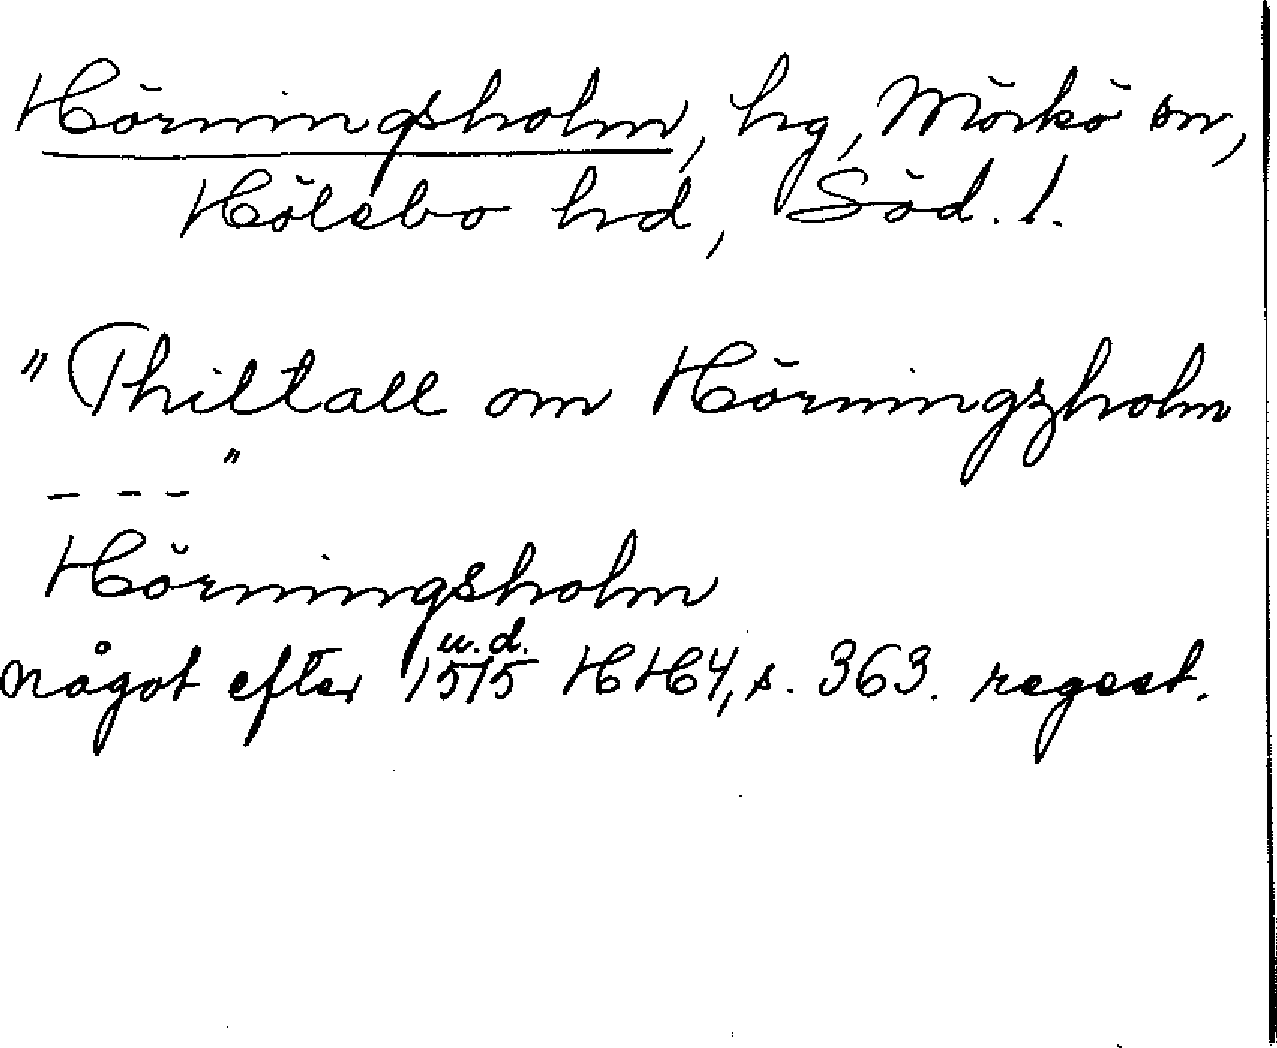 Hörningsholm, hg, Mörkö sn,
Hölebo hd, Söd. l.
"Thiltall om Hörningzholm
- - -"
Hörningsholm
u.d.
något efter 1515 HH4, s. 363. regest.